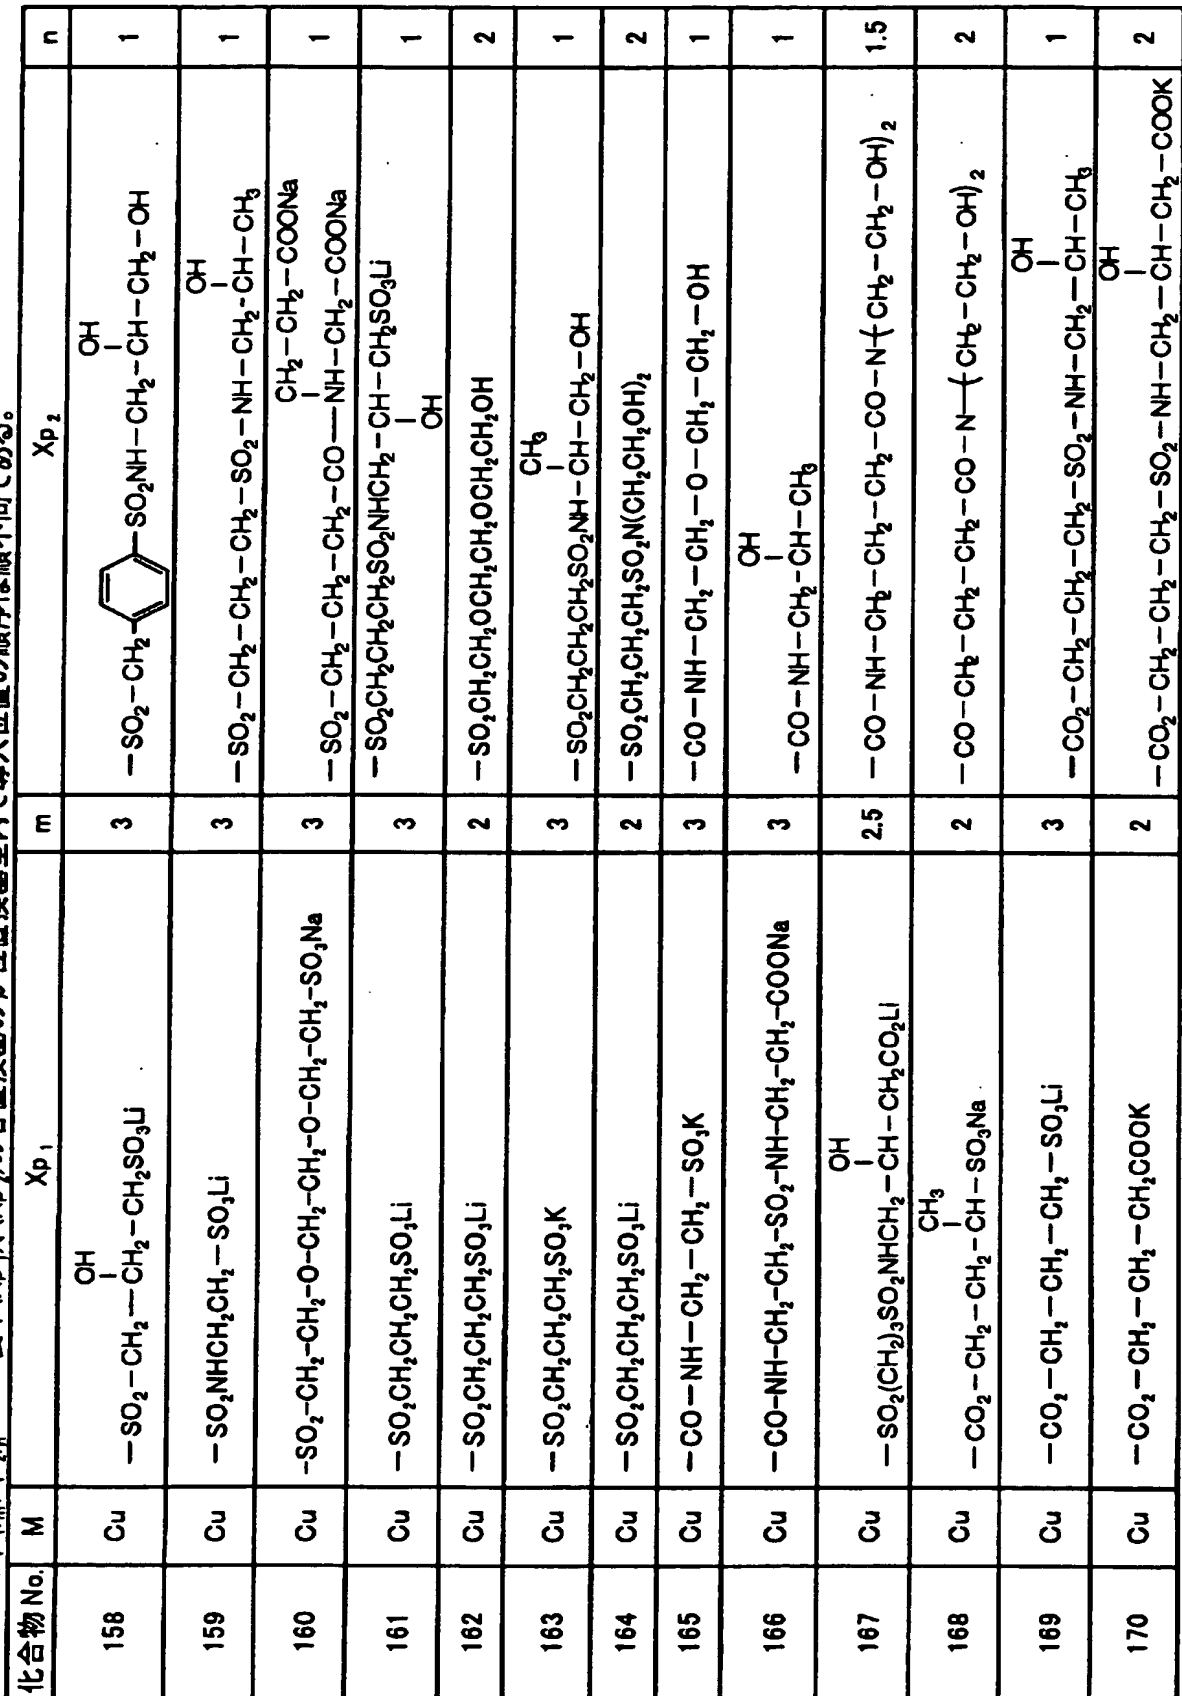 化合物 No. M Xp₁ m Xp₂ n
OH OH
158 Cu —SO₂—CH₂—CH₂—CH₂SO₃Li 3 —SO₂—CH₂— —SO₂NH—CH₂—CH—CH₂—OH 1
OH
159 Cu —SO₂NHCH₂CH₂—SO₃Li 3 —SO₂—CH₂—CH₂—CH₂—SO₂—NH—CH₂-CH—CH₃ 1
CH₂—CH₂—COONa
160 Cu -SO₂-CH₂-CH₂-O-CH₂-CH₂-O-CH₂-CH₂-SO₃Na 3 —SO₂—CH₂—CH₂—CH₂—CO—NH—CH₂—COONa 1
161 Cu —SO₂CH₂CH₂CH₂SO₃Li 3 —SO₂CH₂CH₂CH₂SO₂NHCH₂—CH—CH₂SO₃Li 1
OH
162 Cu —SO₂CH₂CH₂CH₂SO₃Li 2 —SO₂CH₂CH₂OCH₂CH₂OCH₂CH₂OH 2
CH₃
163 Cu —SO₂CH₂CH₂CH₂SO₃K 3 —SO₂CH₂CH₂CH₂SO₂NH—CH—CH₂—OH 1
164 Cu —SO₂CH₂CH₂CH₂SO₃Li 2 —SO₂CH₂CH₂CH₂SO₂N(CH₂CH₂OH)₂ 2
165 Cu —CO—NH—CH₂—CH₂—SO₃K 3 —CO—NH—CH₂—CH₂—O—CH₂—CH₂—OH 1
OH
166 Cu —CO-NH-CH₂-CH₂-SO₂-NH-CH₂-CH₂-COONa 3 —CO—NH—CH₂-CH—CH₃ 1
OH
167 Cu —SO₂(CH₂)₃SO₂NHCH₂—CH—CH₂CO₂Li 2.5 —CO—NH—CH₂—CH₂—CH₂—CO—N(CH₂—CH₂—OH)₂ 1.5
CH₃
168 Cu —CO₂—CH₂—CH₂—CH—SO₃Na 2 —CO—CH₂—CH₂—CH₂—CO—N(CH₂—CH₂—OH)₂ 2
OH
169 Cu —CO₂—CH₂—CH₂—CH₂—SO₃Li 3 —CO₂—CH₂—CH₂—CH₂—SO₂—NH—CH₂—CH—CH₃ 1
OH
170 Cu —CO₂—CH₂—CH₂—CH₂COOK 2 —CO₂—CH₂—CH₂—CH₂—SO₂—NH—CH₂—CH—CH₂—COOK 2